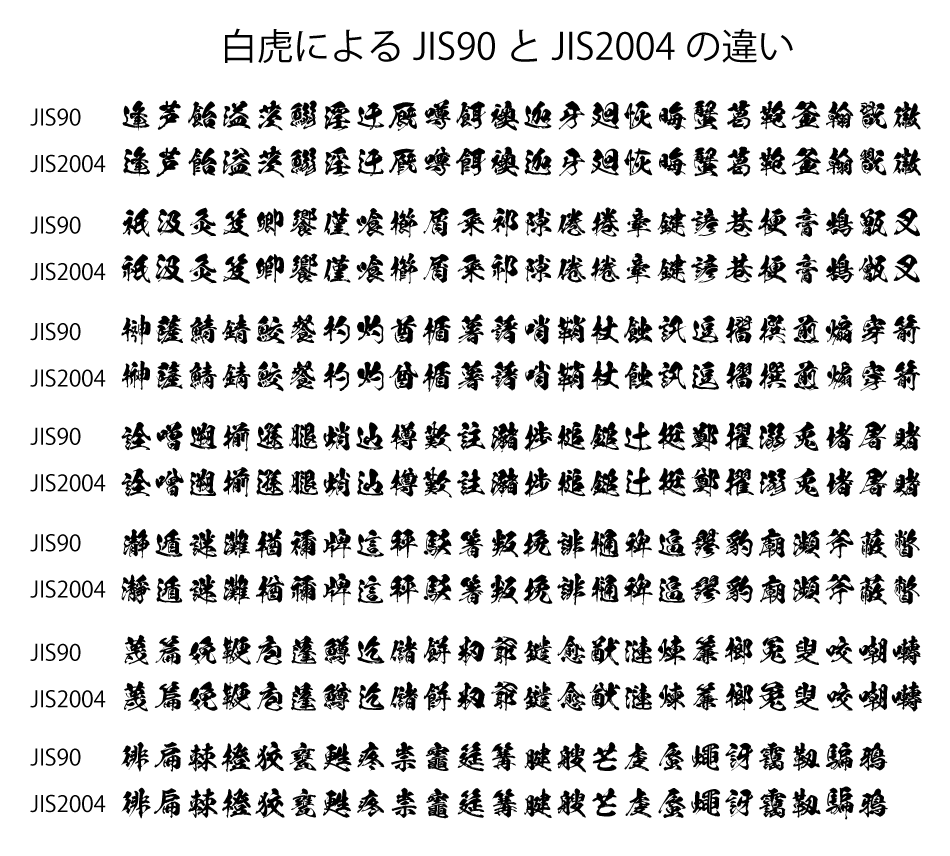 白虎による JIS90 と JIS2004 の違い
JIS90 逢芦飴溢茨鰯淫迂厩噂餌襖迦牙廻恢晦蟹葛鞄釜翰翫徽
JIS2004 逢芦飴溢茨鰯淫迂厩噂餌襖迦牙廻恢晦蟹葛鞄釜翰翫徽
JIS90 祇汲灸笈卿饗僅喰櫛屑粂祁隙倦捲牽鍵諺巷梗膏鵠甑叉
JIS2004 祇汲灸笈卿饗僅喰櫛屑粂祁隙倦捲牽鍵諺巷梗膏鵠甑叉
JIS90 榊薩鯖錆鮫餐杓灼酋楯薯藷哨鞘杖蝕訊逗摺撰煎煽穿箭
JIS2004 榊薩鯖錆鮫餐杓灼酋楯薯藷哨鞘杖蝕訊逗摺撰煎煽穿箭
JIS90 詮噌遡揃遜腿蛸辿樽歎註瀦捗槌鎚辻挺鄭擢溺兎堵屠賭
JIS2004 詮噌遡揃遜腿蛸辿樽歎註瀦捗槌鎚辻挺鄭擢溺兎堵屠賭
JIS90 瀞遁謎灘楢禰牌這秤駁箸叛挽誹樋稗逼謬豹廟瀕斧蔽瞥
JIS2004 瀞遁謎灘楢禰牌這秤駁箸叛挽誹樋稗逼謬豹廟瀕斧蔽瞥
JIS90 蔑篇娩鞭庖蓬鱒迄儲餅籾爺鑓愈猷漣煉簾榔冤叟咬嘲囀
JIS2004 蔑篇娩鞭庖蓬鱒迄儲餅籾爺鑓愈猷漣煉簾榔冤叟咬嘲囀
JIS90 徘扁棘橙狡甕甦疼祟竈筵篝腱艘芒虔蜃蠅訝靄靱騙鴉
JIS2004 徘扁棘橙狡甕甦疼祟竈筵篝腱艘芒虔蜃蠅訝靄靱騙鴉